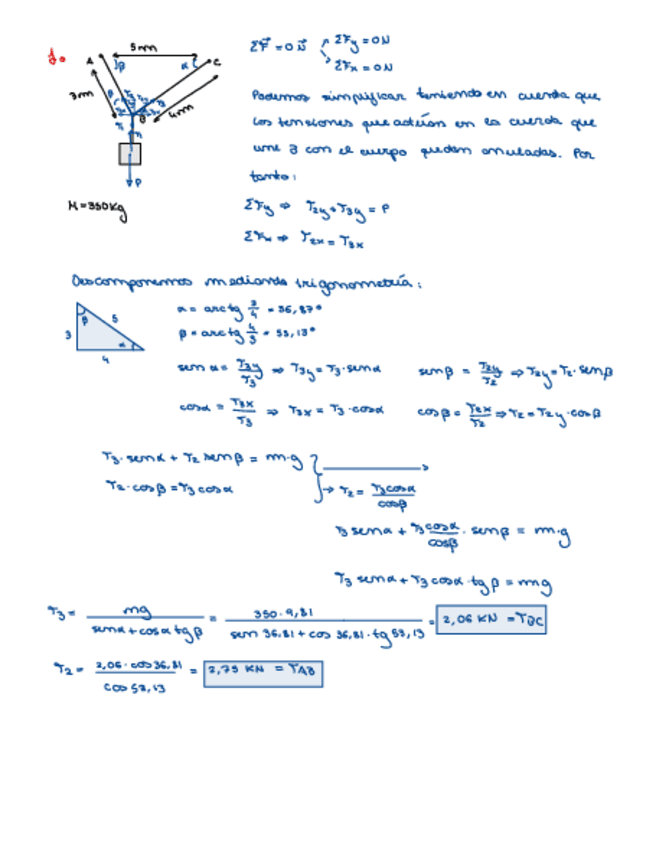 1.
5m
A
β
α
C
3m
4m
B
P
M=350Kg
ΣF⃗ = 0 N⃗
ΣFy = 0N
ΣFx = 0N
Podemos simplificar teniendo en cuenta que
las tensiones que actúan en la cuerda que
une B con el cuerpo quedan anuladas. Por
tanto:
ΣFy ⇒ T2y + T3y = P
ΣFx ⇒ T2x = T3x
Descomponemos mediante trigonometría:
3
β
5
α
4
α = arctg 3/4 = 36,87°
β = arctg 4/3 = 53,13°
sen α = T3y/T3 ⇒ T3y = T3·senα
sen β = T2y/T2 ⇒ T2y = T2·senβ
cosα = T3x/T3 ⇒ T3x = T3·cosα
cosβ = T2x/T2 ⇒ T2 = T2y·cosβ
T3·senα + T2 senβ = m·g
T2·cosβ = T3 cosα
→ T2 = T3cosα/cosβ
T3 senα + T3cosα/cosβ · senβ = m·g
T3 senα + T3 cosα·tgβ = mg
T3 = mg/(senα + cosα tgβ) = 350·9,81/(sen 36,81 + cos 36,81·tg 53,13) = 2,06 KN = TBC
T2 = 2,06·cos36,81/cos 53,13 = 2,75 KN = TAB